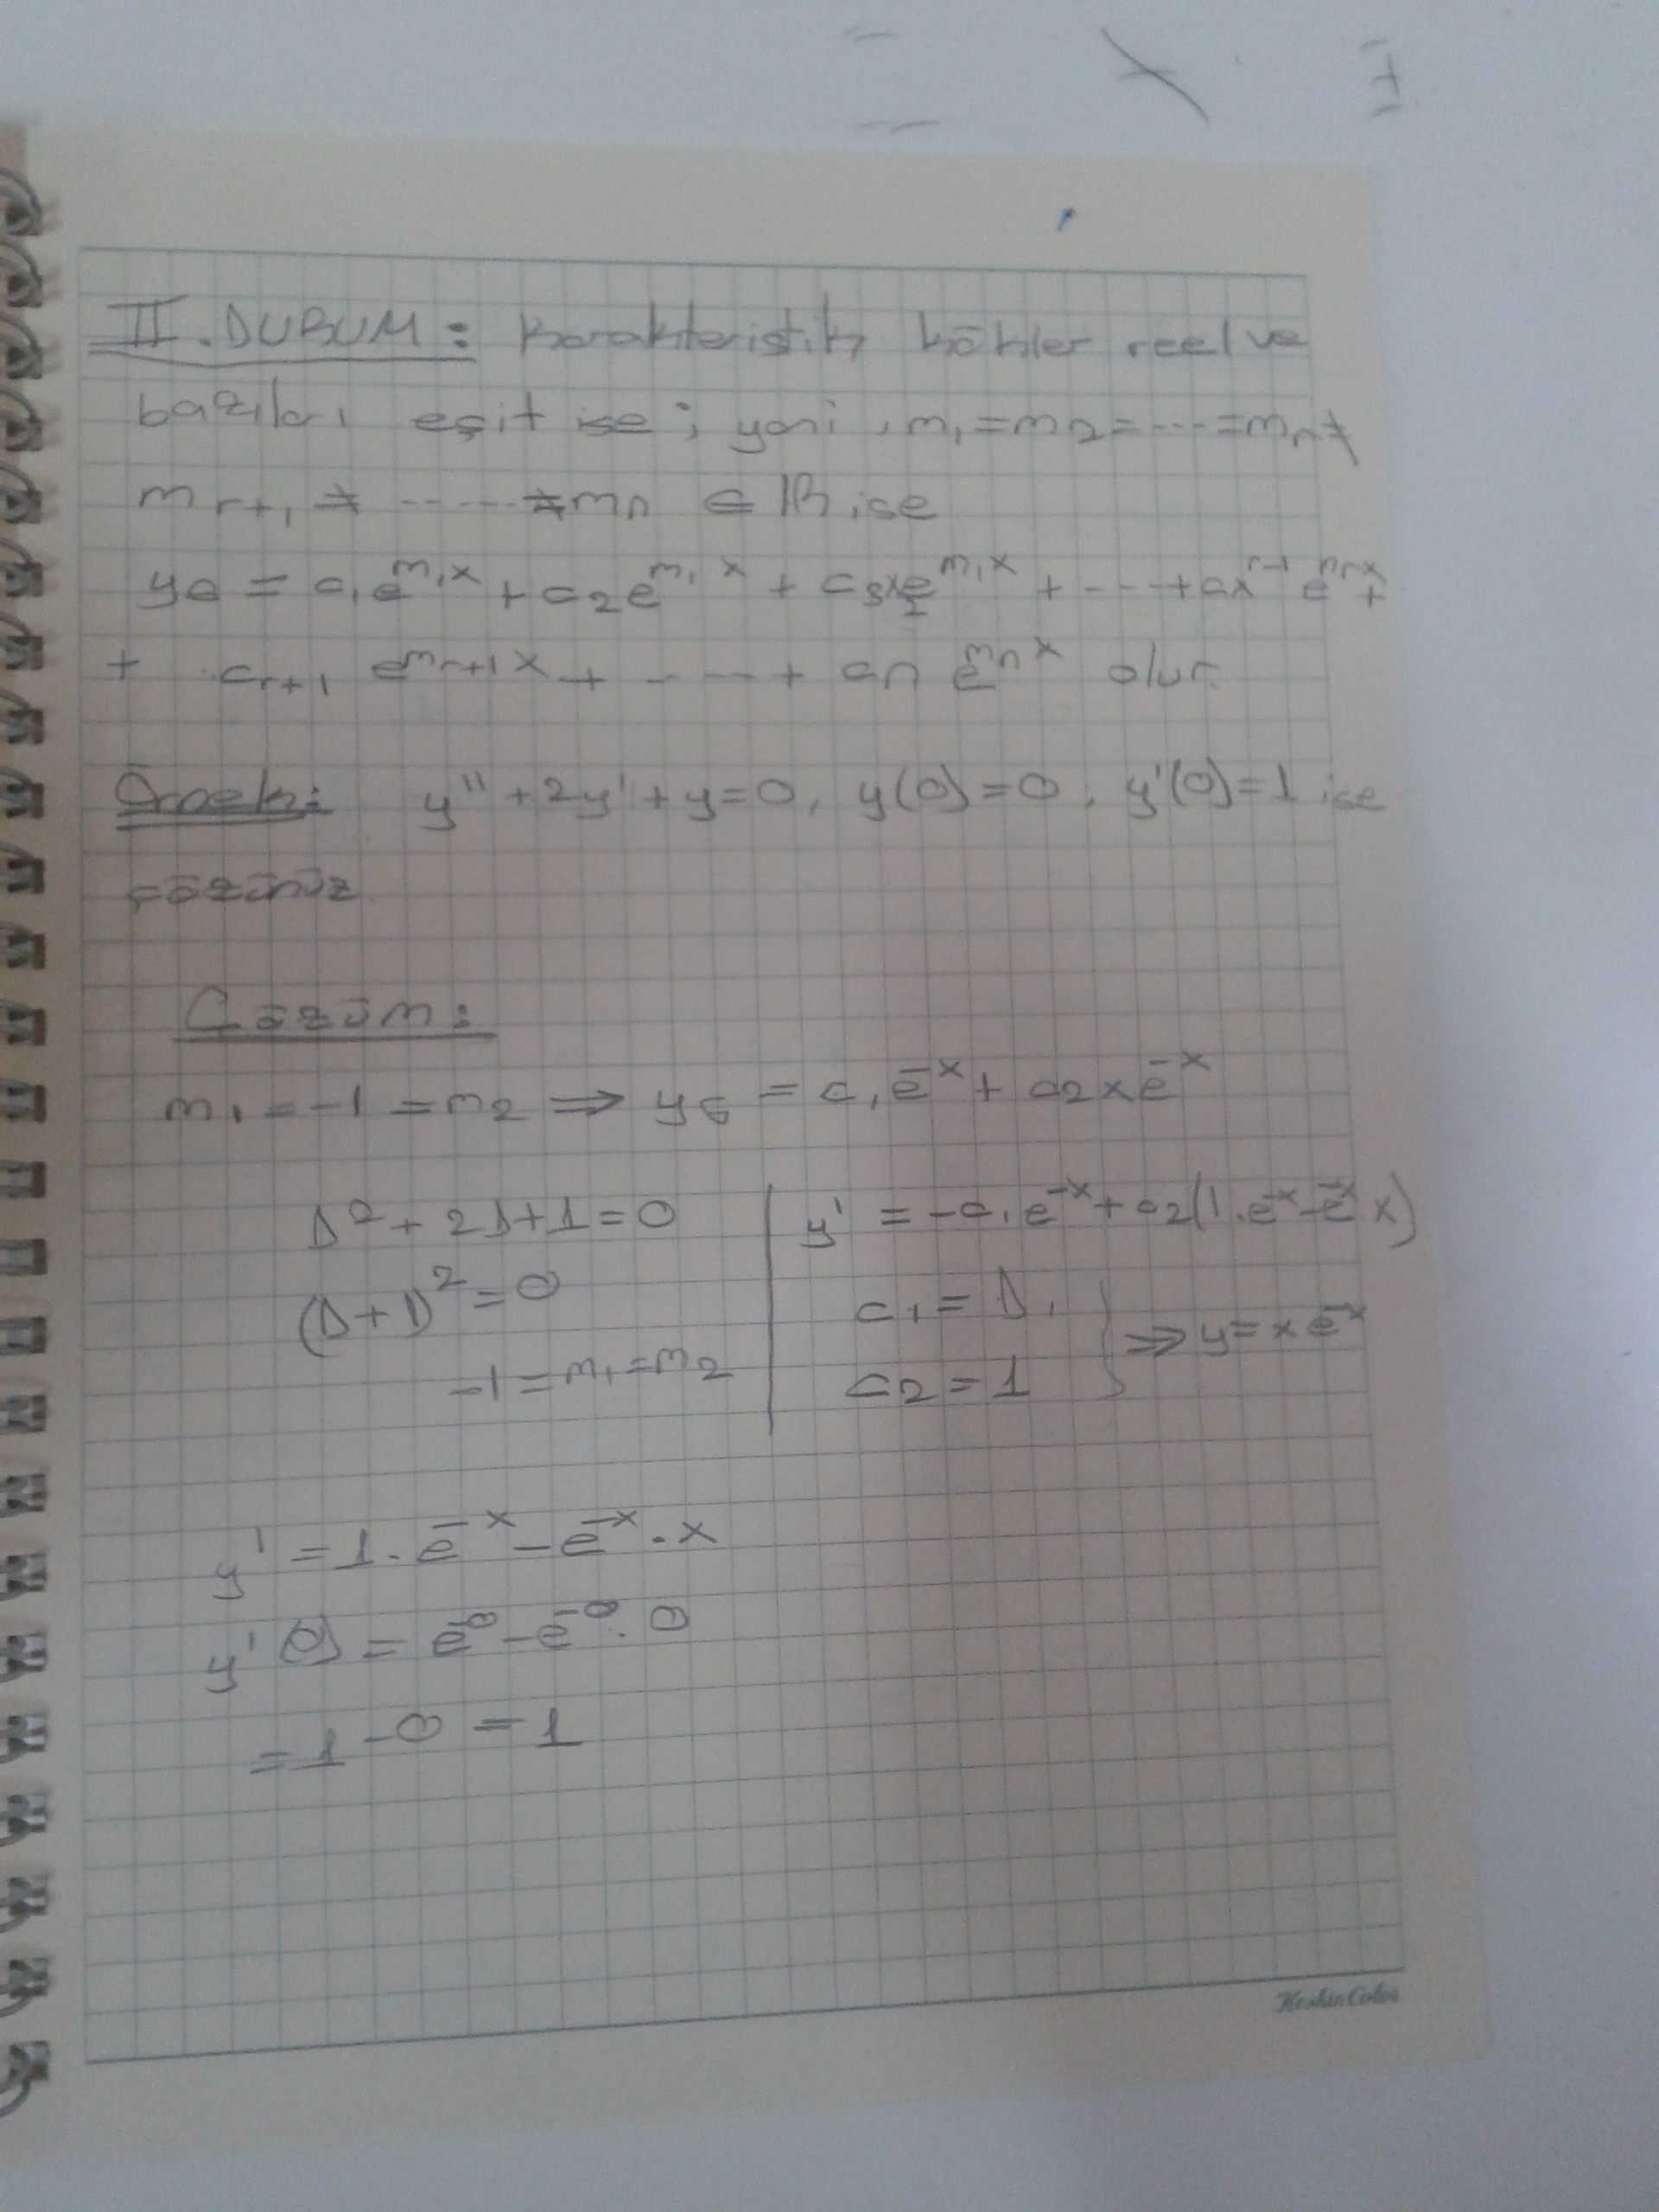 II. DURUM: Karakteristik kökler reel ve
bazıları eşit ise; yani, m₁=m₂=---=mᵣ≠
mᵣ₊₁ ≠ ----- ≠mₙ ∈ IR ise
y_G = c₁e^m₁x + c₂e^m₁x + c₃xe^m₁x + ---+cx^r-1 e^mᵣx +
+ cᵣ₊₁ e^mᵣ₊₁x + ----+ cₙ e^mₙx olur.
Örnek: y'' + 2y' + y = 0, y(0) = 0, y'(0) = 1 ise
çözünüz
Çözüm:
m₁ = -1 = m₂ ⇒ y_G = c₁e^-x + c₂xe^-x
D² + 2D+1 = 0
(D+1)² = 0
-1 = m₁ = m₂
y' = -c₁e^-x + c₂(1.e^-x - e^-x x)
c₁ = 0,
c₂ = 1 } ⇒ y = xe^-x
y' = 1.e^-x - e^-x . x
y'(0) = e^-0 - e^-0 . 0
= 1 - 0 = 1
Keskin Color